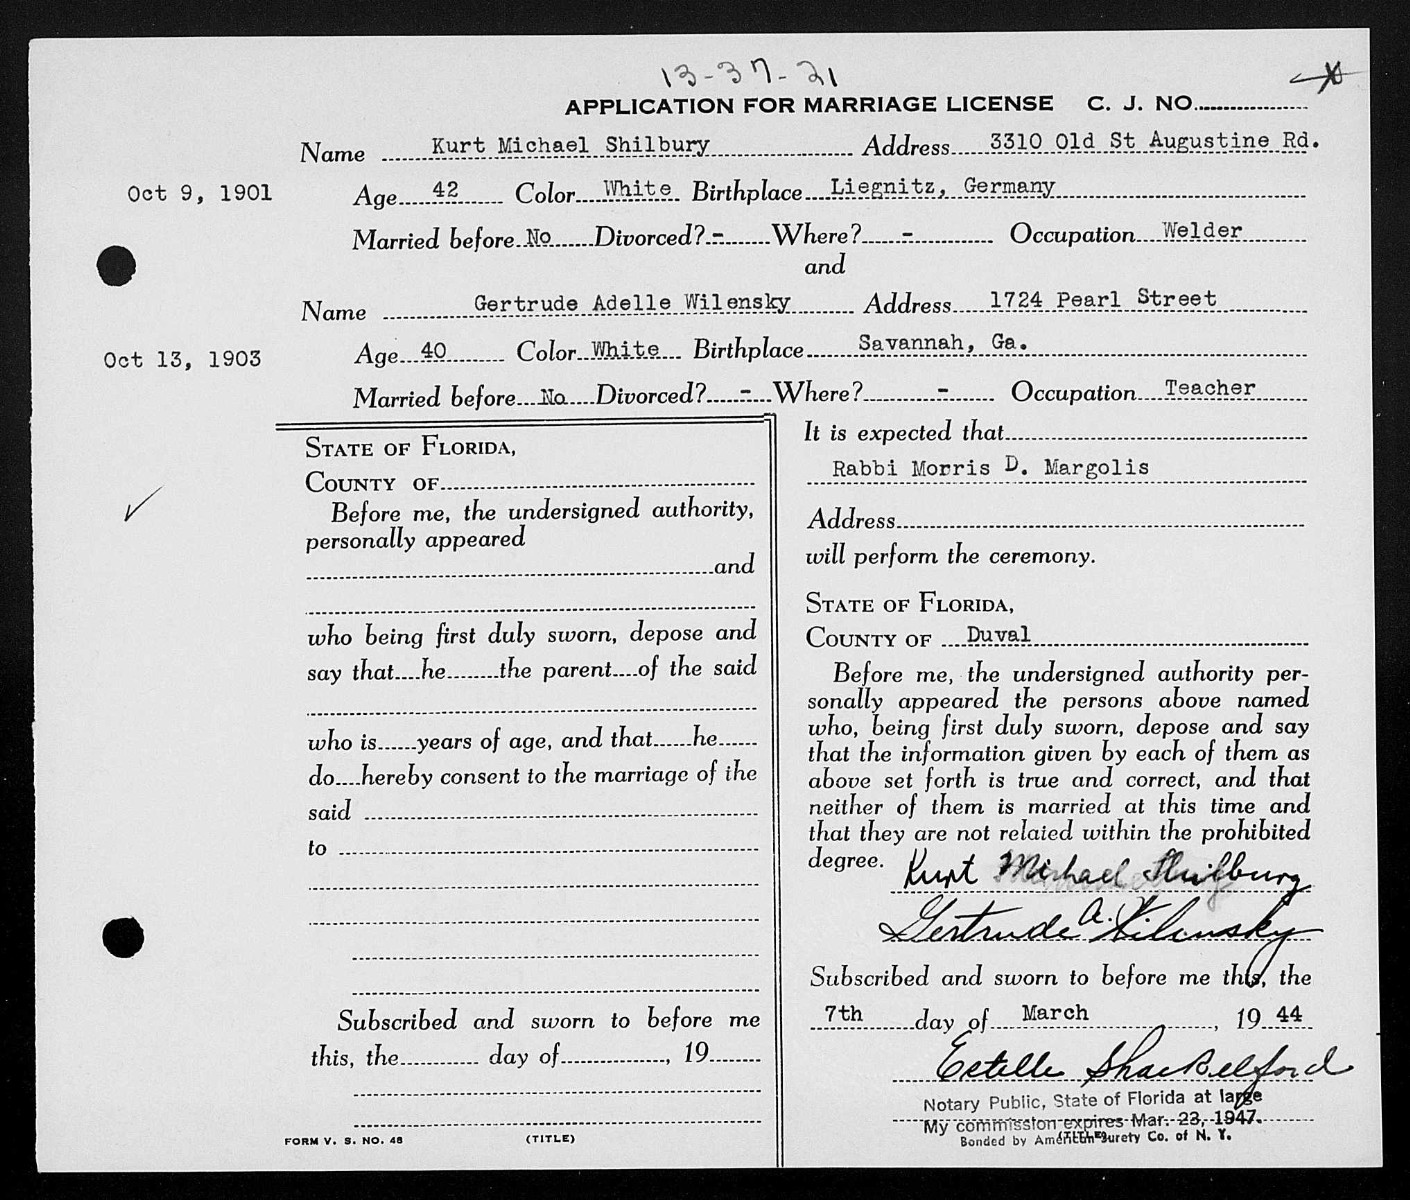 13-37-21
APPLICATION FOR MARRIAGE LICENSE C. J. NO.
Name Kurt Michael Shilbury Address 3310 Old St Augustine Rd.
Oct 9, 1901 Age 42 Color White Birthplace Liegnitz, Germany
Married before No Divorced? - Where? - Occupation Welder
and
Name Gertrude Adelle Wilensky Address 1724 Pearl Street
Oct 13, 1903 Age 40 Color White Birthplace Savannah, Ga.
Married before No Divorced? - Where? - Occupation Teacher
STATE OF FLORIDA,
COUNTY OF
Before me, the undersigned authority,
personally appeared
and
who being first duly sworn, depose and
say that he the parent of the said
who is years of age, and that he
do hereby consent to the marriage of the
said
to
Subscribed and sworn to before me
this, the day of , 19
(TITLE)
FORM V. S. NO. 48
It is expected that
Rabbi Morris D. Margolis
Address
will perform the ceremony.
STATE OF FLORIDA,
COUNTY OF Duval
Before me, the undersigned authority per-
sonally appeared the persons above named
who, being first duly sworn, depose and say
that the information given by each of them as
above set forth is true and correct, and that
neither of them is married at this time and
that they are not related within the prohibited
degree. Kurt Michael Shilbury
Gertrude A. Wilensky
Subscribed and sworn to before me this, the
7th day of March , 19 44
Estelle Shackelford
Notary Public, State of Florida at large
My commission expires Mar. 23, 1947.
Bonded by American Surety Co. of N. Y.
(TITLE)